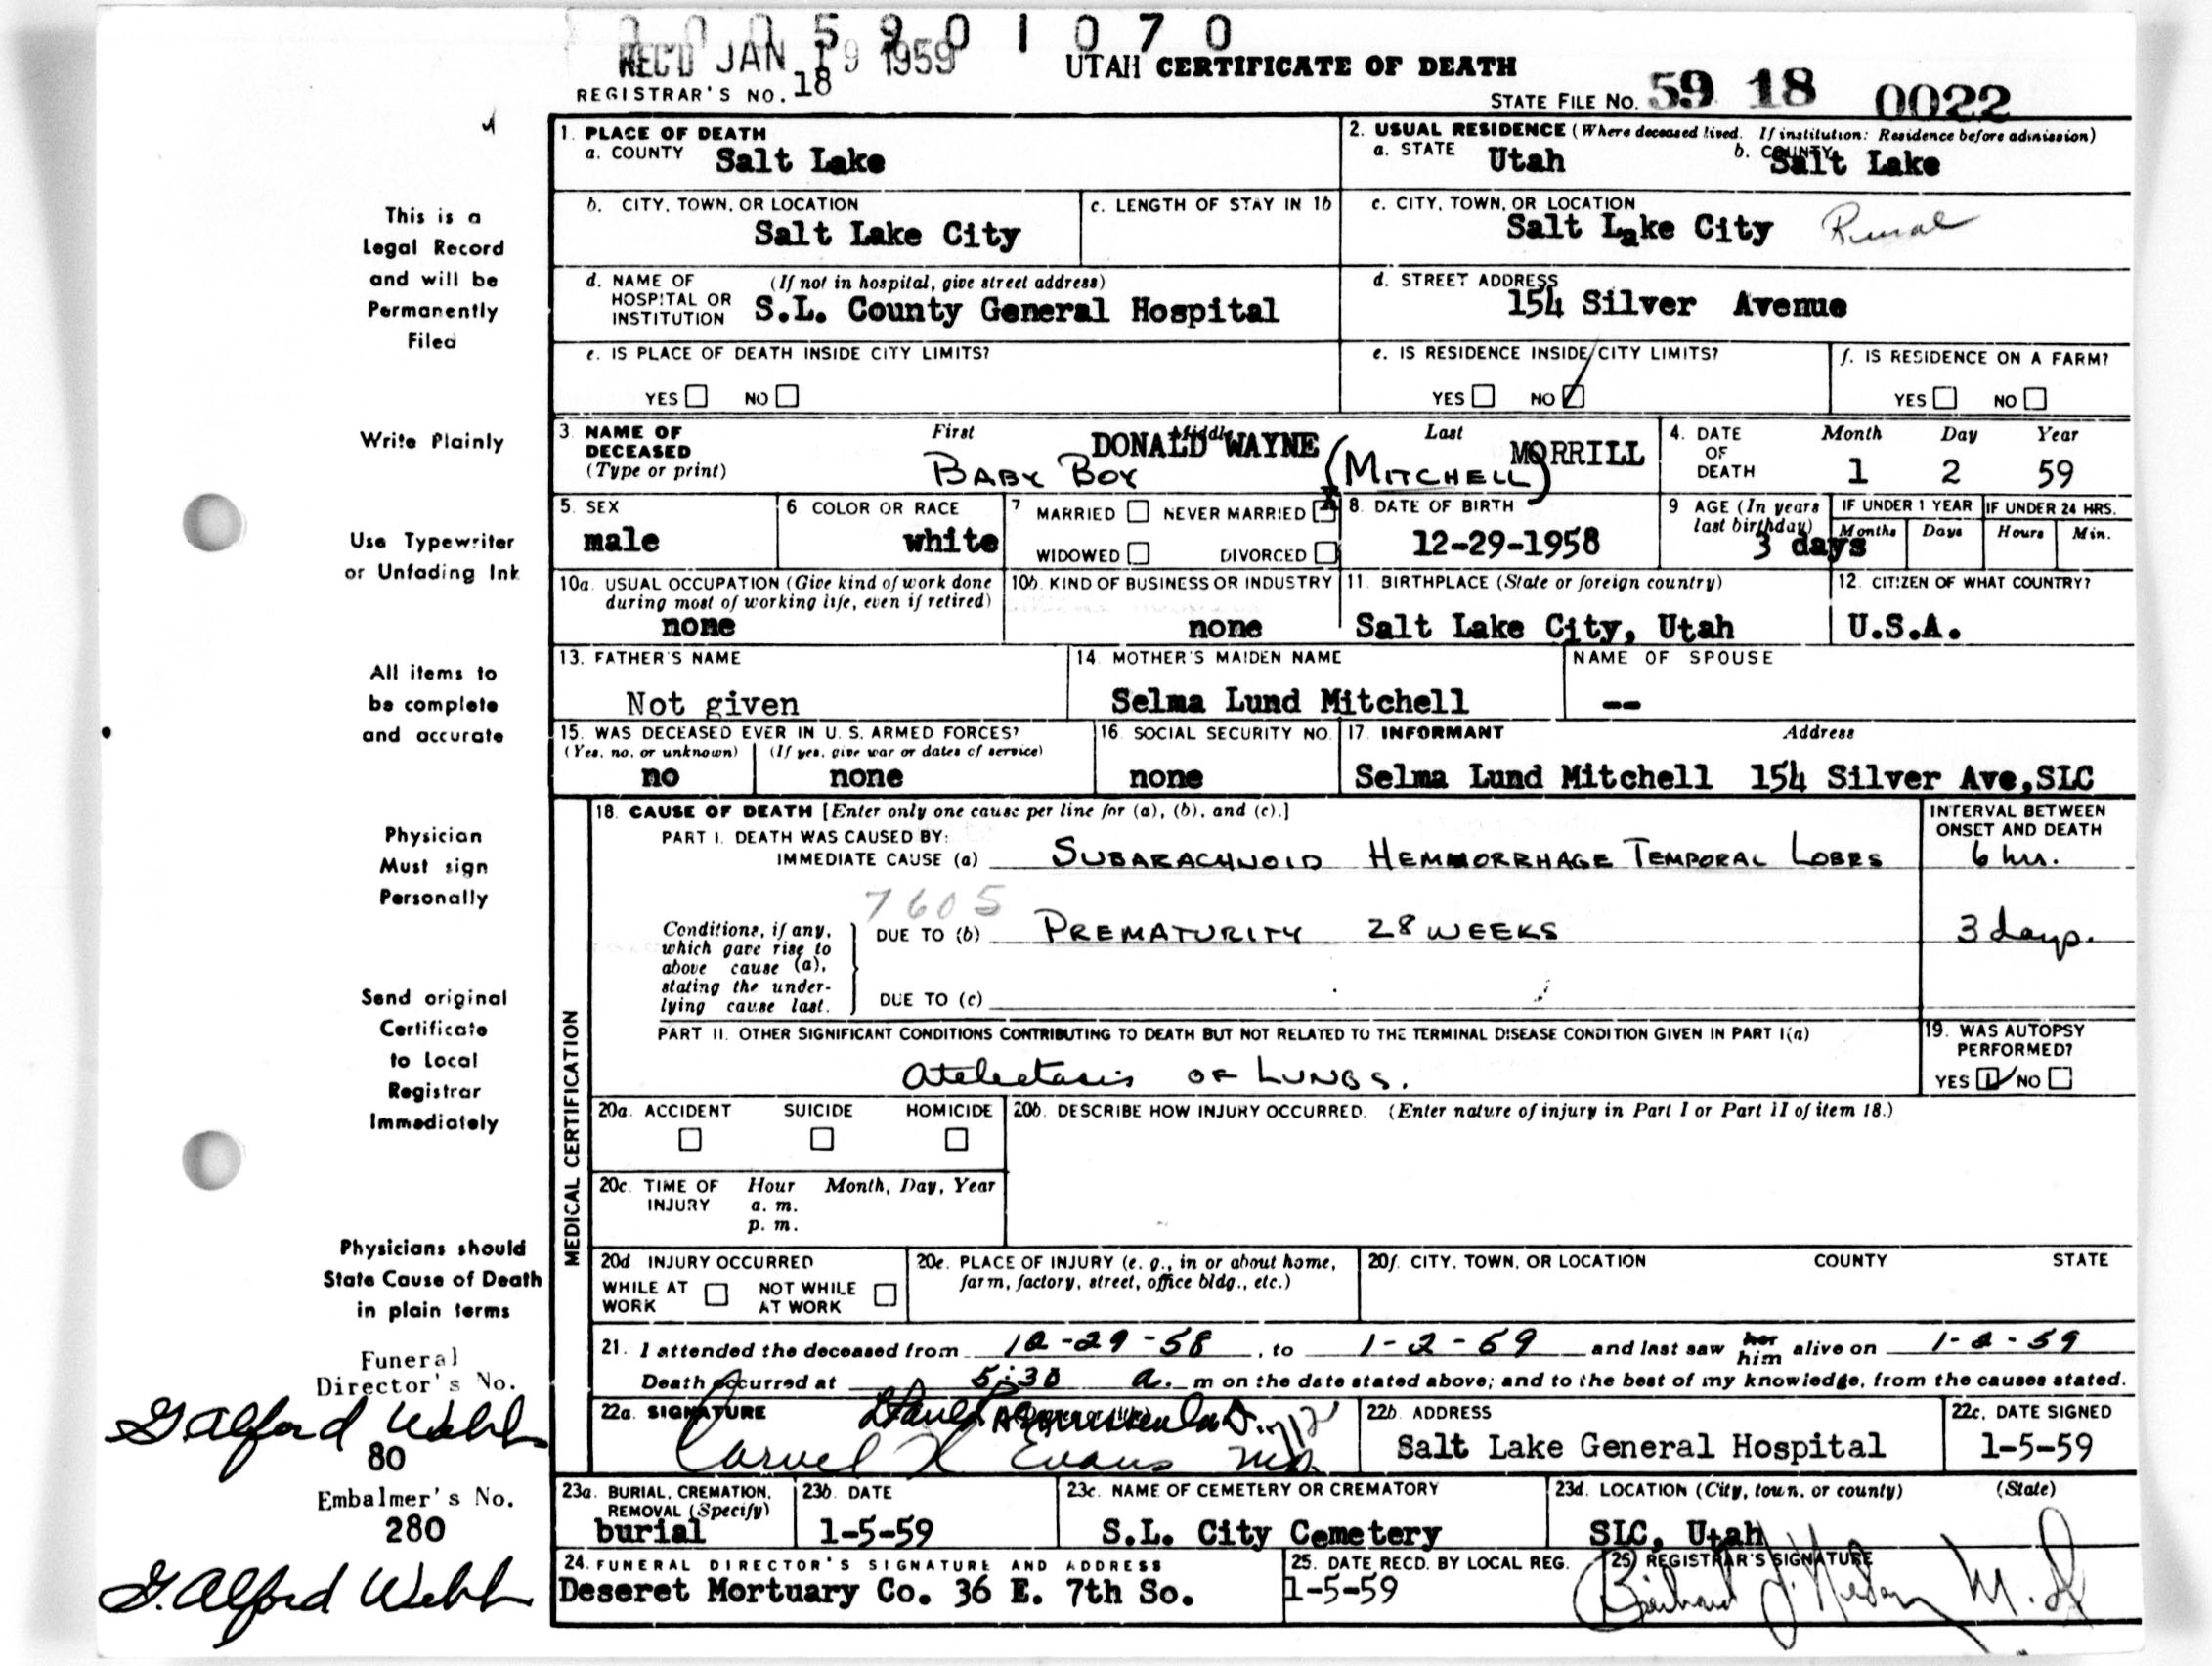 0 0 5 9 0 1 0 7 0
REC'D JAN 19 1959
UTAH CERTIFICATE OF DEATH
REGISTRAR'S NO. 18
STATE FILE NO. 59 18 0022
This is a
Legal Record
and will be
Permanently
Filed
Write Plainly
Use Typewriter
or Unfading Ink
All items to
be complete
and accurate
Physician
Must sign
Personally
Send original
Certificate
to Local
Registrar
Immediately
Physicians should
State Cause of Death
in plain terms
Funeral
Director's No.
G. Alford Webb
80
Embalmer's No.
280
G. Alford Webb
1. PLACE OF DEATH
a. COUNTY Salt Lake
2. USUAL RESIDENCE (Where deceased lived. If institution: Residence before admission)
a. STATE Utah b. COUNTY Salt Lake
b. CITY, TOWN, OR LOCATION
Salt Lake City
c. LENGTH OF STAY IN 1b
c. CITY, TOWN, OR LOCATION
Salt Lake City Rural
d. NAME OF HOSPITAL OR INSTITUTION (If not in hospital, give street address)
S.L. County General Hospital
d. STREET ADDRESS
154 Silver Avenue
e. IS PLACE OF DEATH INSIDE CITY LIMITS?
YES NO
e. IS RESIDENCE INSIDE CITY LIMITS?
YES NO
f. IS RESIDENCE ON A FARM?
YES NO
3 NAME OF DECEASED (Type or print)
First Middle Last
DONALD WAYNE MORRILL
BABY BOY (MITCHELL)
4. DATE OF DEATH
Month Day Year
1 2 59
5. SEX
male
6 COLOR OR RACE
white
7 MARRIED NEVER MARRIED X
WIDOWED DIVORCED
8. DATE OF BIRTH
12-29-1958
9 AGE (In years last birthday)
3 days
IF UNDER 1 YEAR IF UNDER 24 HRS.
Months Days Hours Min.
10a. USUAL OCCUPATION (Give kind of work done during most of working life, even if retired)
none
10b. KIND OF BUSINESS OR INDUSTRY
none
11. BIRTHPLACE (State or foreign country)
Salt Lake City, Utah
12. CITIZEN OF WHAT COUNTRY?
U.S.A.
13. FATHER'S NAME
Not given
14. MOTHER'S MAIDEN NAME
Selma Lund Mitchell
NAME OF SPOUSE
--
15. WAS DECEASED EVER IN U. S. ARMED FORCES?
(Yes, no, or unknown) (If yes, give war or dates of service)
no none
16. SOCIAL SECURITY NO.
none
17. INFORMANT Address
Selma Lund Mitchell 154 Silver Ave,SLC
MEDICAL CERTIFICATION
18. CAUSE OF DEATH [Enter only one cause per line for (a), (b), and (c).]
INTERVAL BETWEEN ONSET AND DEATH
PART I. DEATH WAS CAUSED BY:
IMMEDIATE CAUSE (a) SUBARACHNOID HEMMORRHAGE TEMPORAL LOBES 6 hrs.
7605
Conditions, if any, which gave rise to above cause (a), stating the underlying cause last.
DUE TO (b) PREMATURITY 28 WEEKS 3 days.
DUE TO (c)
PART II. OTHER SIGNIFICANT CONDITIONS CONTRIBUTING TO DEATH BUT NOT RELATED TO THE TERMINAL DISEASE CONDITION GIVEN IN PART I(a)
Atelectasis OF LUNGS.
19. WAS AUTOPSY PERFORMED?
YES NO
20a. ACCIDENT SUICIDE HOMICIDE
20b. DESCRIBE HOW INJURY OCCURRED. (Enter nature of injury in Part I or Part II of item 18.)
20c. TIME OF INJURY Hour Month, Day, Year
a. m.
p. m.
20d INJURY OCCURRED
WHILE AT WORK NOT WHILE AT WORK
20e. PLACE OF INJURY (e. g., in or about home, farm, factory, street, office bldg., etc.)
20f. CITY, TOWN, OR LOCATION COUNTY STATE
21. I attended the deceased from 12-29-58, to 1-2-59 and last saw her him alive on 1-2-59
Death occurred at 5:30 a. m on the date stated above; and to the best of my knowledge, from the causes stated.
22a. SIGNATURE
Carvel K Evans M.D.
22b. ADDRESS
Salt Lake General Hospital
22c. DATE SIGNED
1-5-59
23a. BURIAL, CREMATION, REMOVAL (Specify)
burial
23b. DATE
1-5-59
23c. NAME OF CEMETERY OR CREMATORY
S.L. City Cemetery
23d. LOCATION (City, town, or county) (State)
SLC, Utah
24. FUNERAL DIRECTOR'S SIGNATURE AND ADDRESS
Deseret Mortuary Co. 36 E. 7th So.
25. DATE RECD. BY LOCAL REG.
1-5-59
25) REGISTRAR'S SIGNATURE
M.D.